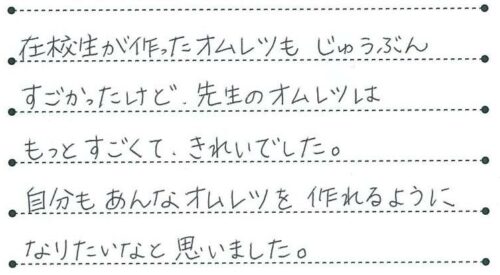 在校生が作ったオムレツも じゅうぶん
すごかったけど、先生のオムレツは
もっとすごくて、きれいでした。
自分もあんなオムレツを 作れるように
なりたいなと思いました。